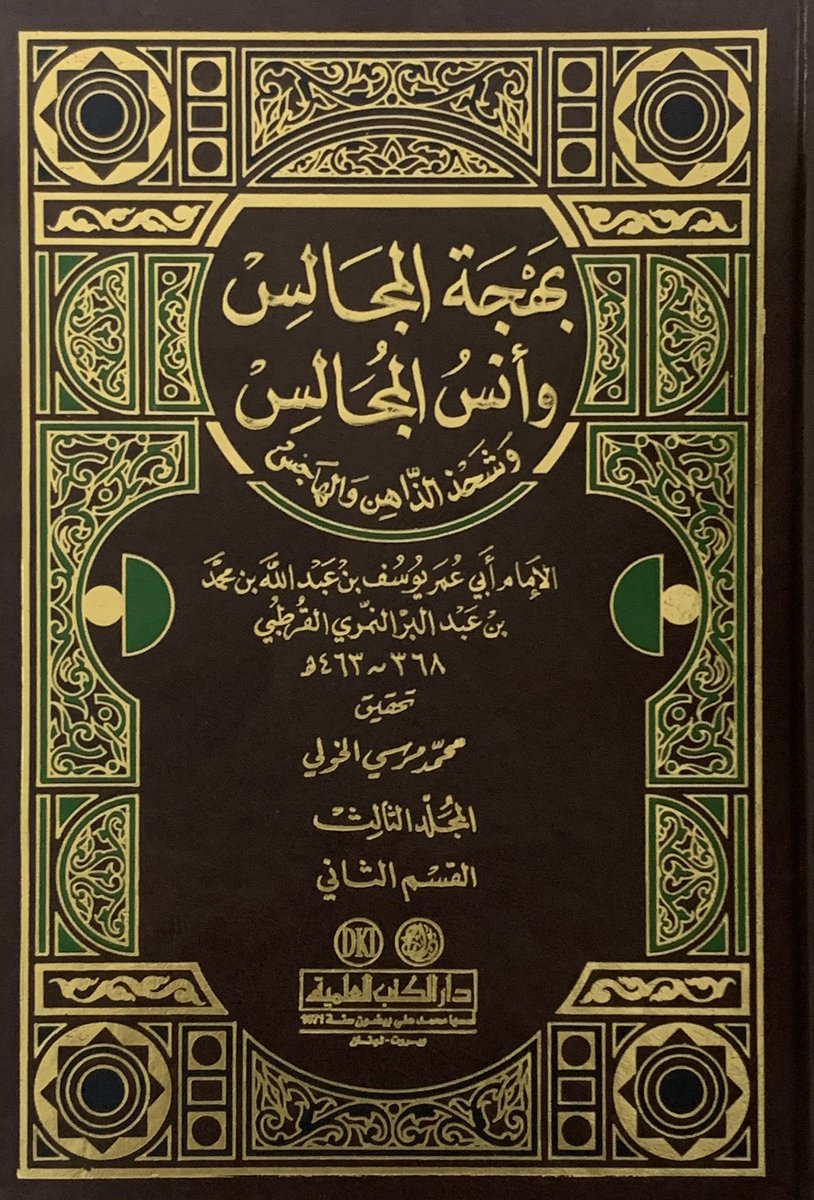 بَهْجَة المجَالِسْ
وأنسُ المجُالِسْ
وَشَحَذ الذَّاهِن وَالهَاجِسْ
الإمَام أبي عُمَر يُوسُف بنْ عَبْد اللَّه بن محمَّد
بنْ عَبْد البرْ النمّري القُرطبيُ
٣٦٨ ~ ٤٦٣ه
تحقيق
محمّد مرسي الخولي
المجُلّد الثالِث
القسْم الثاني
DKI
دار الكتب العلمية
أسسها محمد علي بيضون سنة 1971
بيروت - لبنان